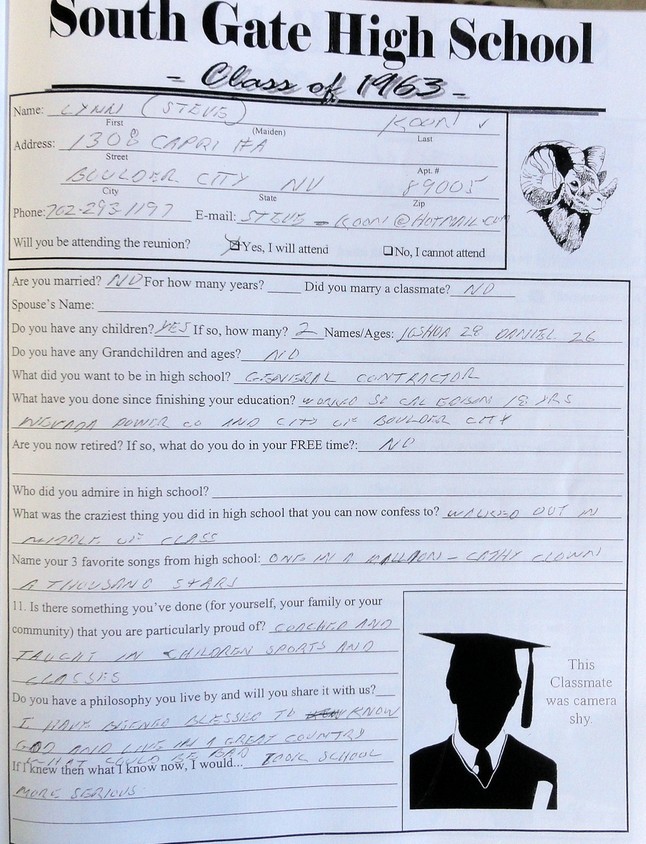 South Gate High School
- Class of 1963 -
Name: LYNN (STEVE) KOONI
First (Maiden) Last
Address: 1308 CAPRI #A
Street Apt. #
BOULDER CITY NV 89005
City State Zip
Phone: 702-293-1197 E-mail: STEVE_KOONI@HOTMAIL.COM
Will you be attending the reunion? Yes, I will attend No, I cannot attend
Are you married? NO For how many years? Did you marry a classmate? NO
Spouse's Name:
Do you have any children? YES If so, how many? 2 Names/Ages: 28 DANIEL 26
Do you have any Grandchildren and ages? NO
What did you want to be in high school? GENERAL CONTRACTOR
What have you done since finishing your education? WORKED SO CAL EDISON 18 YRS
NEVADA POWER CO AND CITY OF BOULDER CITY
Are you now retired? If so, what do you do in your FREE time?: NO
Who did you admire in high school?
What was the craziest thing you did in high school that you can now confess to? WALKED OUT IN
MIDDLE OF CLASS
Name your 3 favorite songs from high school: ONE IN A MILLION - CATHY CLOWN
A THOUSAND STARS
11. Is there something you've done (for yourself, your family or your
community) that you are particularly proud of? COACHED AND
TAUGHT IN CHILDREN SPORTS AND
CLASSES
Do you have a philosophy you live by and will you share it with us?
I HAVE BEENED BLESSED TO KNOW
GOD AND LIVE IN A GREAT COUNTRY
WHAT COULD BE BAD
If I knew then what I know now, I would... TOOK SCHOOL
MORE SERIOUS
This
Classmate
was camera
shy.